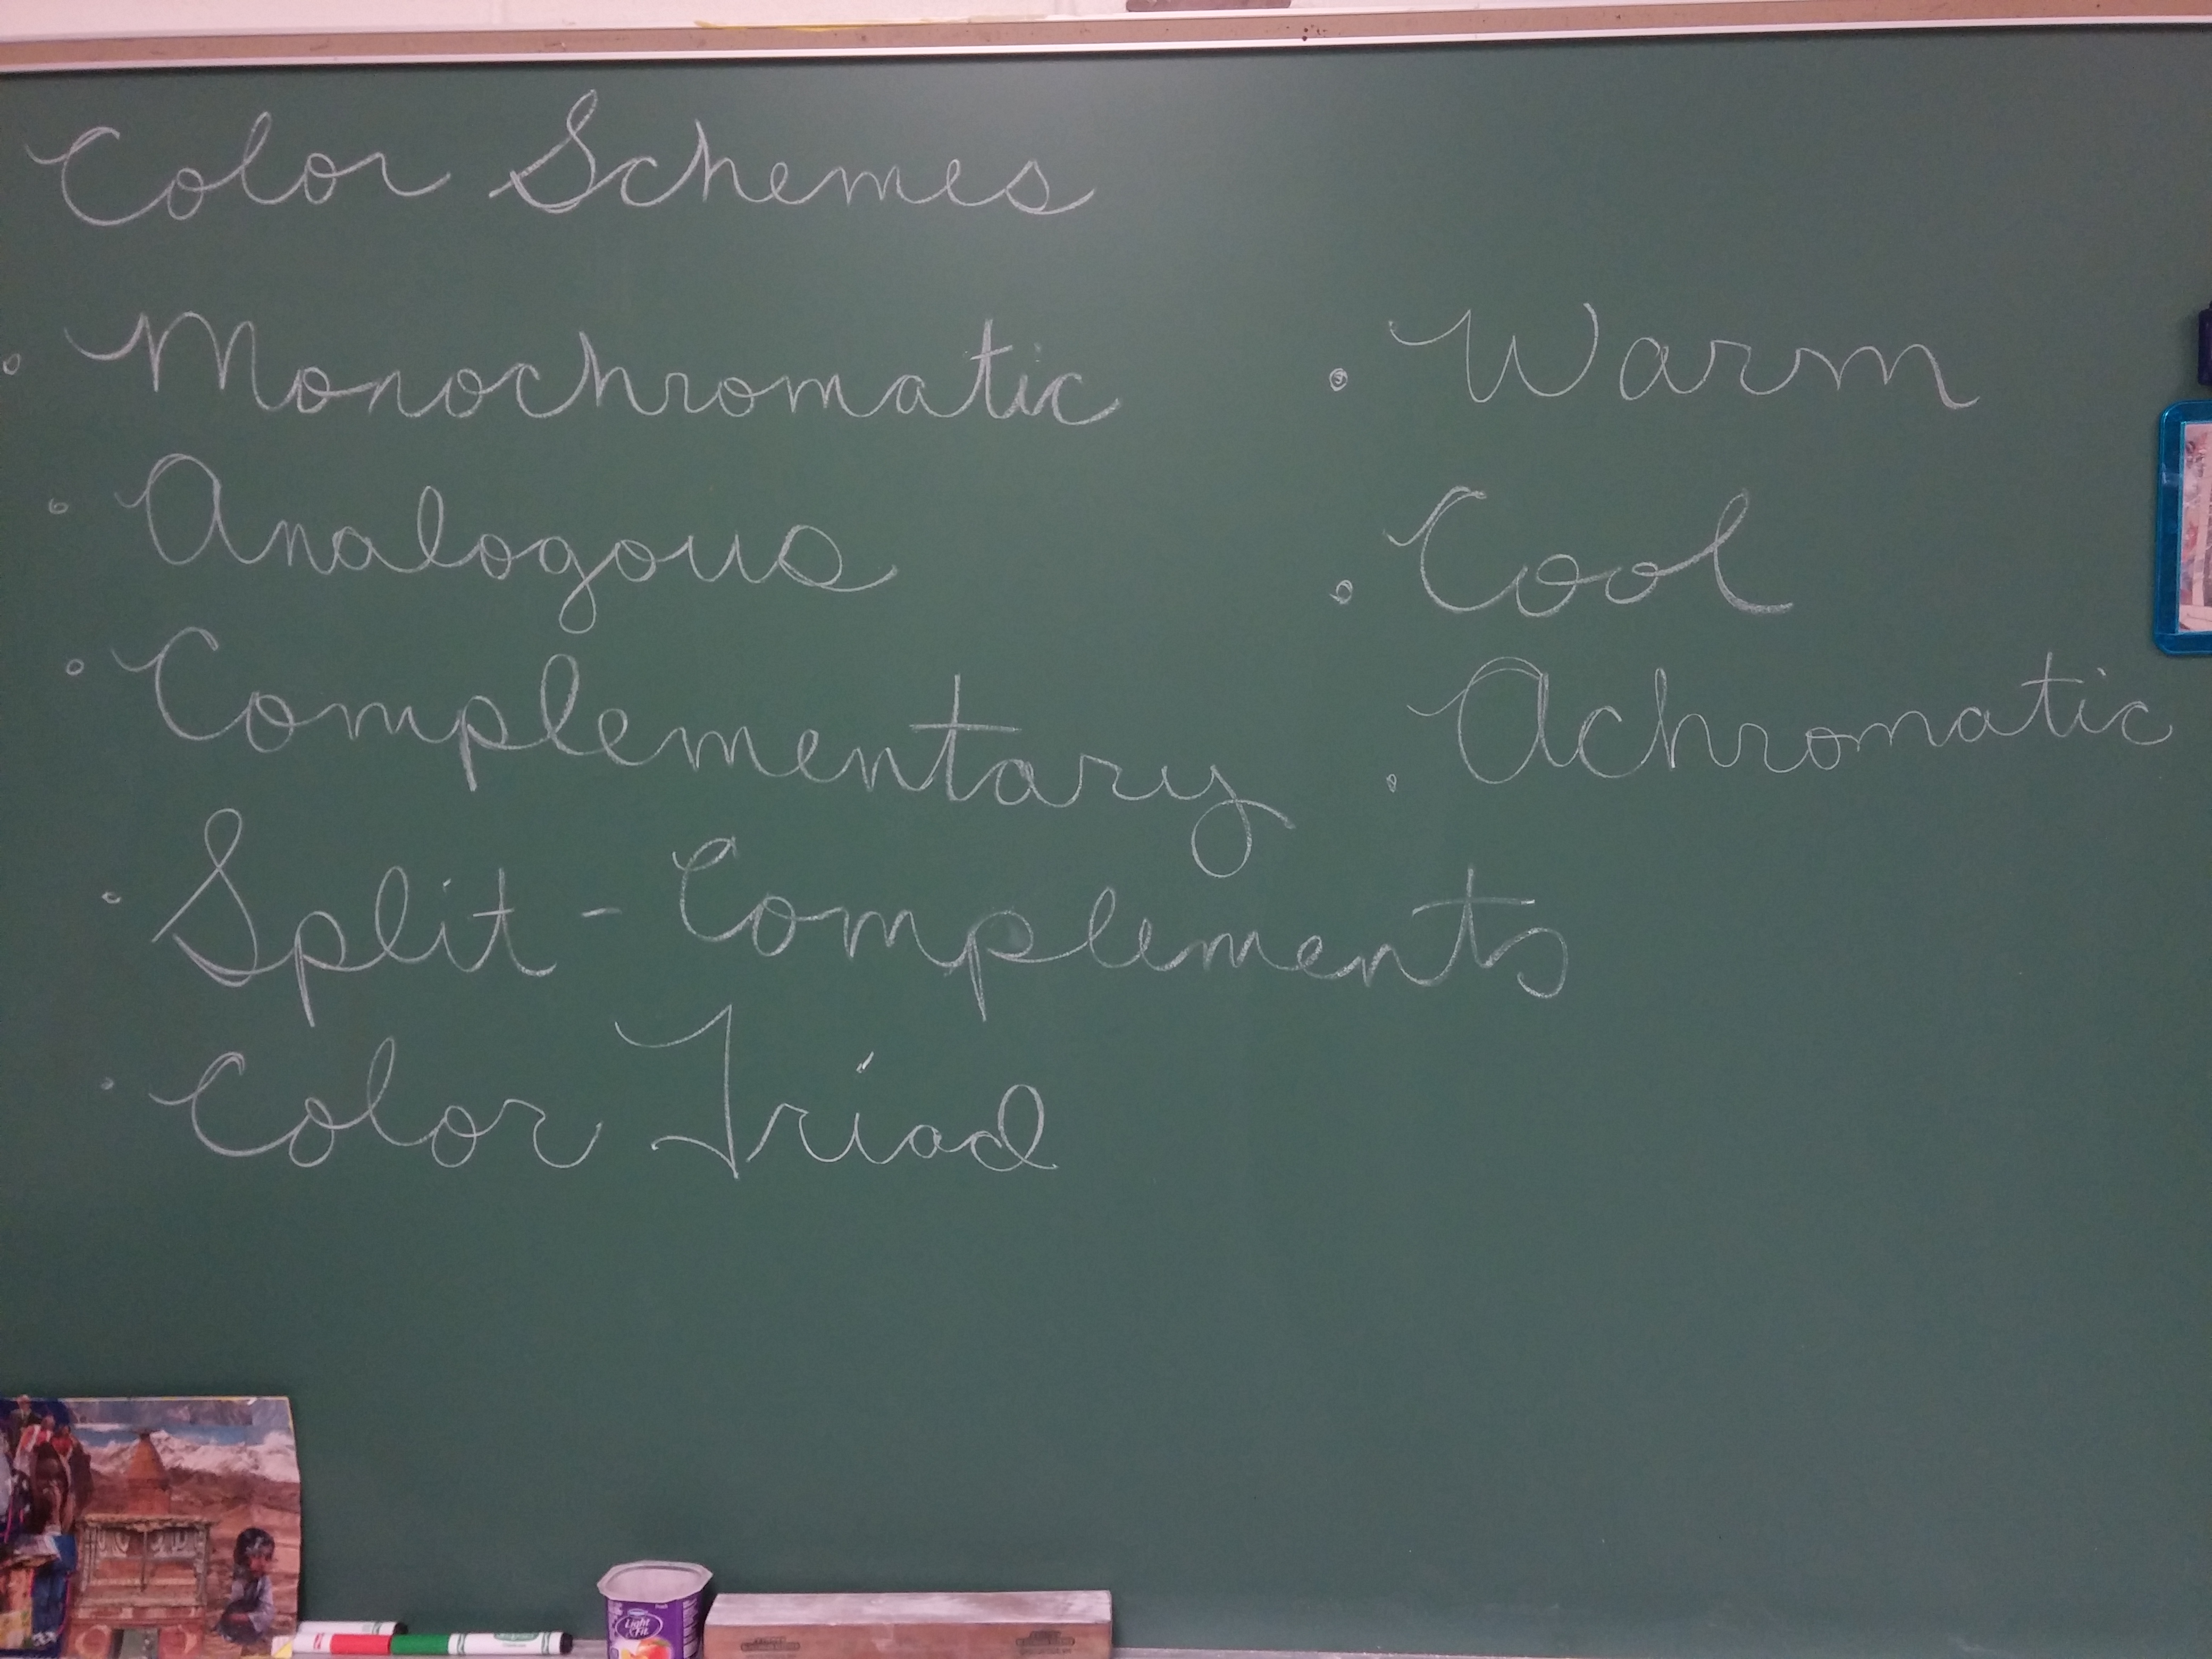 Color Schemes
• Monochromatic
• Analogous
• Complementary
• Split-Complements
• Color Triad
• Warm
• Cool
• Achromatic
Light
& Fit